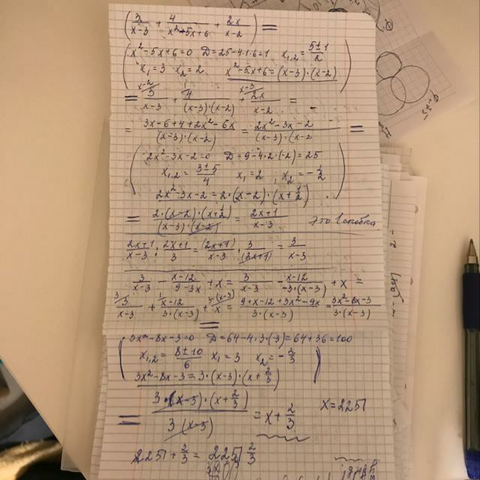 (3/x-3 + 4/x²-5x+6 + 2x/x-2) =
(x²-5x+6=0 D=25-4·1·6=1 x₁,₂ = 5±1/2
x₁=3 x₂=2 x²-5x+6=(x-3)·(x-2))
= 3/x-3 + 4/(x-3)·(x-2) + 2x/x-2 =
= 3x-6+4+2x²-6x/(x-3)·(x-2) = 2x²-3x-2/(x-3)·(x-2) =
(2x²-3x-2=0 D=9-4·2·(-2)=25
x₁,₂ = 3±5/4 x₁=2 x₂=-1/2
2x²-3x-2=2·(x-2)·(x+1/2))
= 2·(x-2)·(x+1/2)/(x-3)·(x-2) = 2x+1/x-3 это 1 скобка
2x+1/x-3 : 2x+1/3 = (2x+1)/x-3 · 3/(2x+1) = 3/x-3
3/x-3 - x-12/9-3x + x = 3/x-3 - x-12/-3·(x-3) + x =
3/x-3 + x-12/3·(x-3) + x = 9+x-12+3x²-9x/3·(x-3) = 3x²-8x-3/3·(x-3)
=
(3x²-8x-3=0 D=64-4·3·(-3)=64+36=100
x₁,₂ = 8±10/6 x₁=3 x₂=-1/3
3x²-8x-3=3·(x-3)·(x+2/3))
= 3·(x-3)·(x+2/3)/3(x-3) = x+2/3 x=2251
2251+2/3 = 2251 2/3